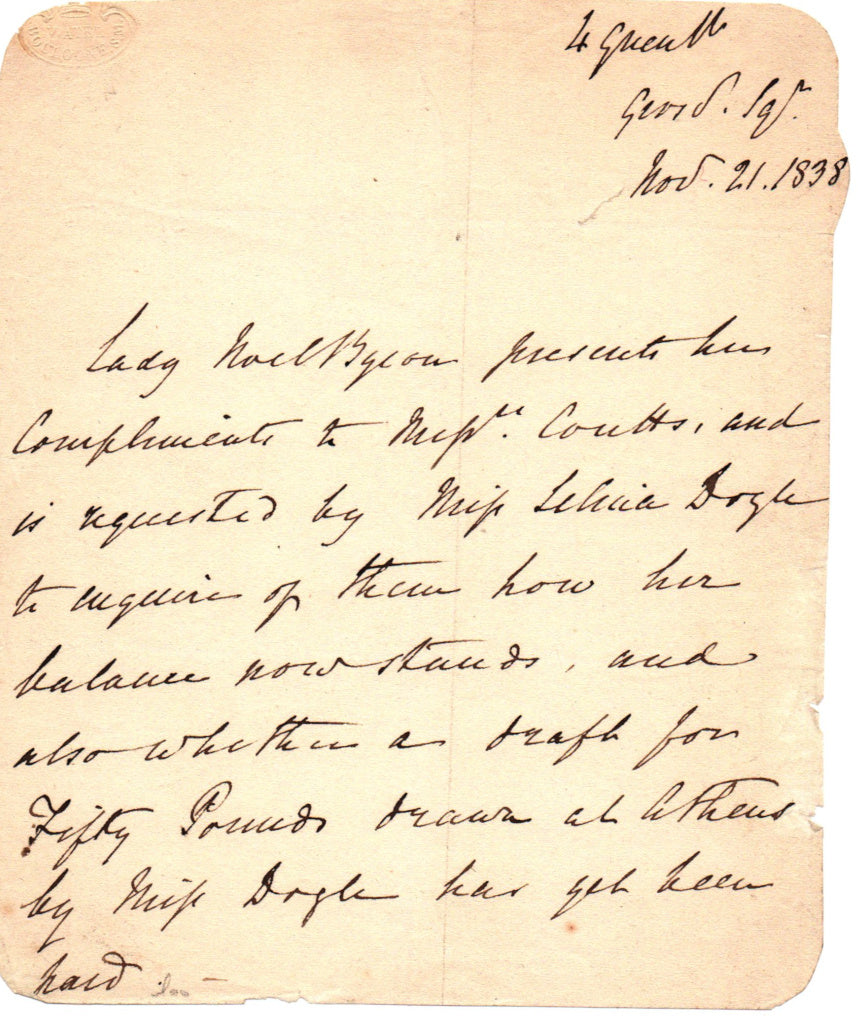 4 Green St.
Grosr. Sqr.
Nov. 21. 1838
Lady Noel Byron presents her
Compliments to Messrs. Coutts, and
is requested by Miss Selina Doyle
to enquire of them how her
balance now stands, and
also whether a draft for
Fifty Pounds drawn at Athens
by Miss Doyle has yet been
paid.